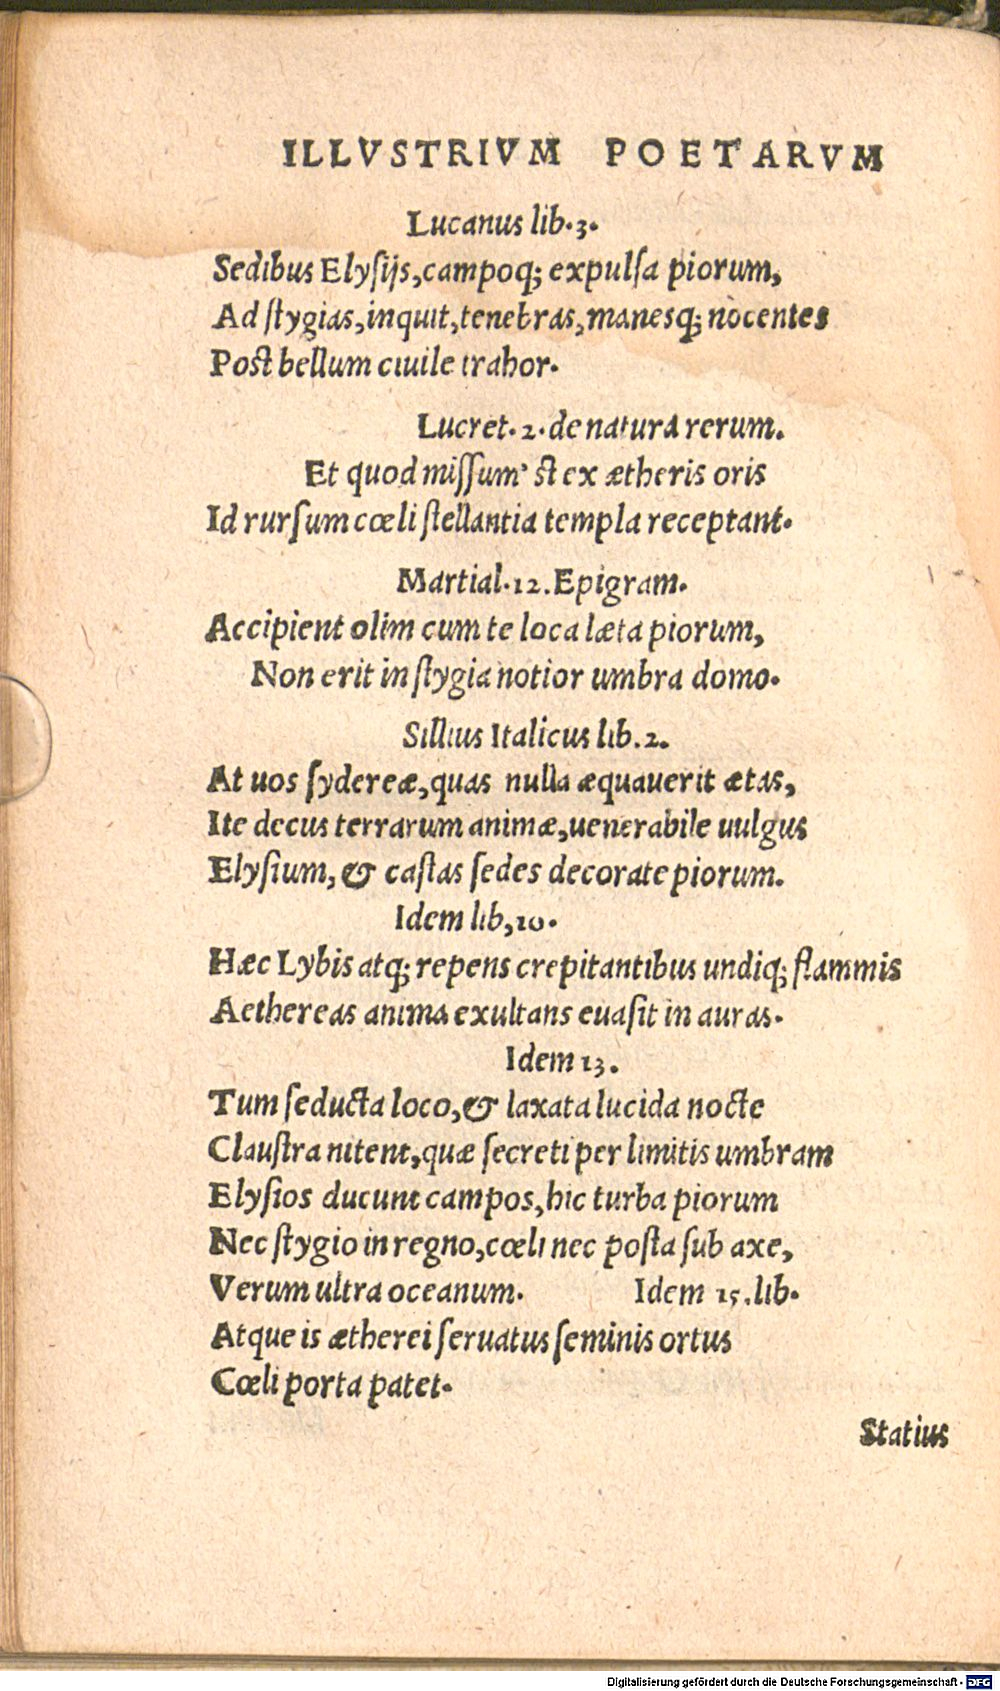 ILLVSTRIVM POETARVM
Lucanus lib.3.
Sedibus Elysijs,campoq; expulsa piorum,
Ad stygias,inquit,tenebras,manesq; nocentes
Post bellum ciuile trahor.
Lucret.2.de natura rerum.
Et quod missum' st ex ætheris oris
Id rursum cœli stellantia templa receptant.
Martial.12.Epigram.
Accipient olim cum te loca læta piorum,
Non erit in stygia notior umbra domo.
Sillius Italicus lib.2.
At uos sydereæ,quas nulla æquauerit ætas,
Ite decus terrarum animæ,uenerabile uulgus
Elysium,& castas sedes decorate piorum.
Idem lib,10.
Hæc Lybis atq; repens crepitantibus undiq; flammis
Aethereas anima exultans euasit in auras.
Idem 13.
Tum seducta loco,& laxata lucida nocte
Claustra nitent,quæ secreti per limitis umbram
Elysios ducunt campos,hic turba piorum
Nec stygio in regno,cœli nec posta sub axe,
Verum ultra oceanum. Idem 15.lib.
Atque is ætherei seruatus seminis ortus
Cœli porta patet.
Statius
Digitalisierung gefördert durch die Deutsche Forschungsgemeinschaft - DFG